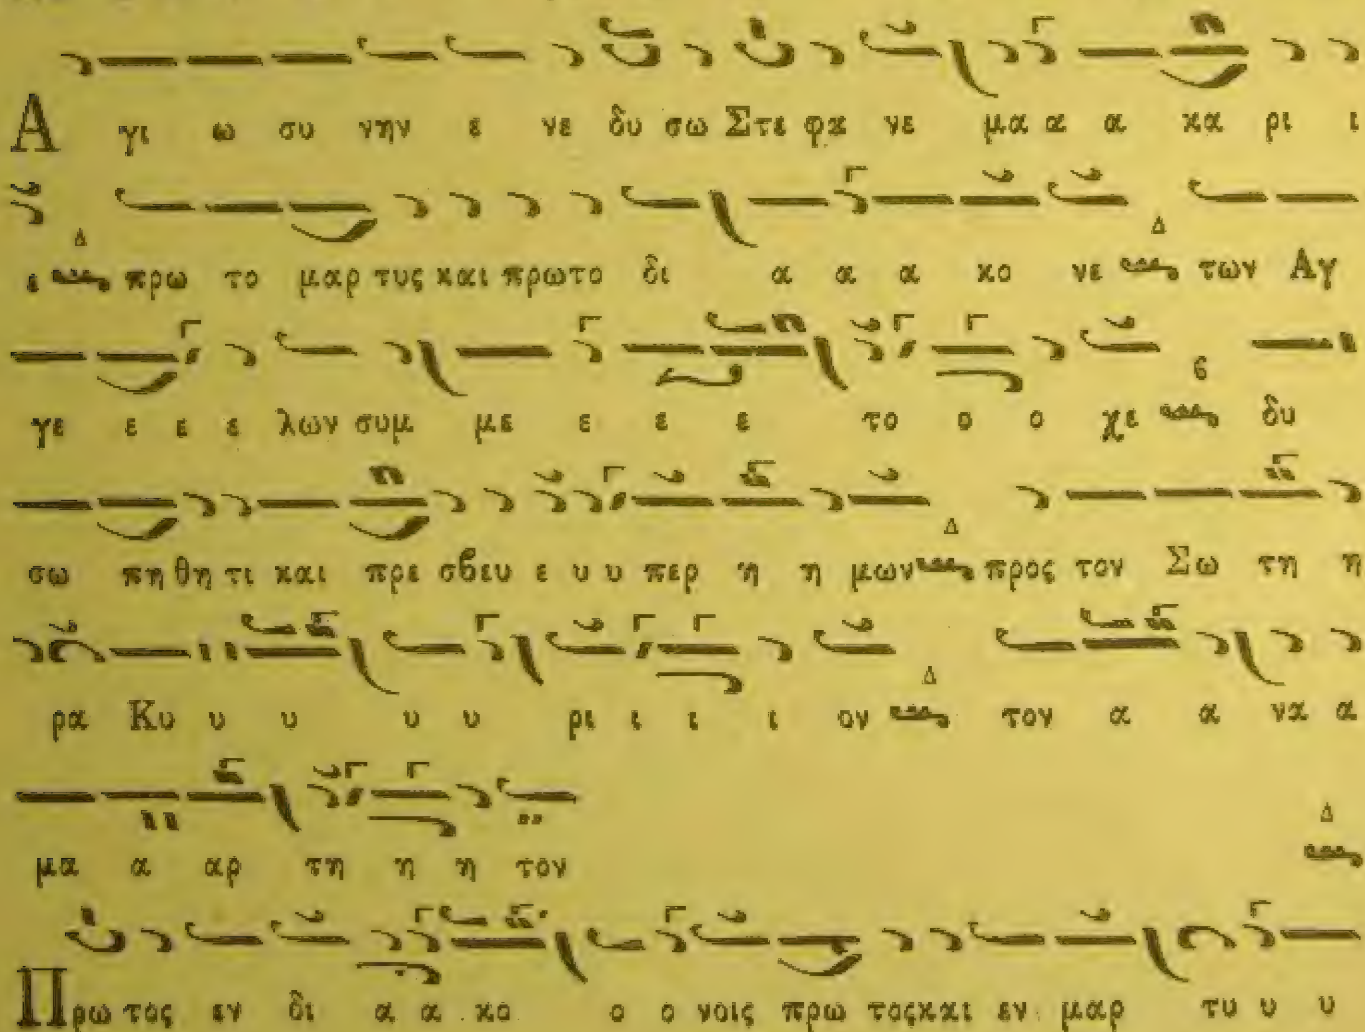 Α γι ω συ νην ε νε δυ σω Στε φα νε μα α α κα ρι ι
ε πρω το μαρ τυς και πρωτο δι α α α κο νε των Αγ
γε ε ε ε λων συμ με ε ε ε το ο ο χε δυ
σω πη θη τι και πρε σβευ ε υ υ περ η η μων προς τον Σω τη η
ρα Κυ υ υ υ υ ρι ι ι ι ον τον α α να α
μα α αρ τη η η τον
Πρω τος εν δι α α κο ο ο νοις πρω τος και εν μαρ τυ υ υ